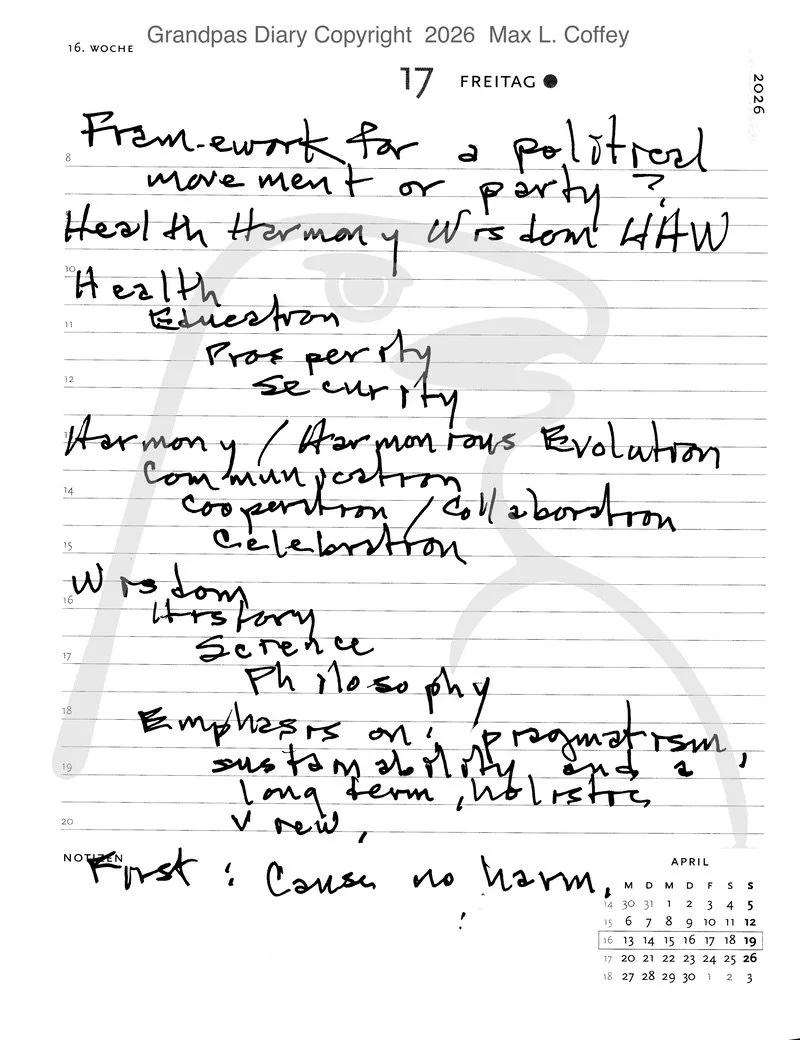 Grandpas Diary Copyright 2026 Max L. Coffey
16. WOCHE
17 FREITAG
2026
Fram-ework for a political
8
movement or party?
Health Harmony Wisdom HHW
10
Health
Education
11
Prosperity
12
Security
13
Harmony / Harmonious Evolution
Communication
14
Cooperation / Collaboration
Celebration
15
Wisdom
16
History
Science
17
Philosophy
18
Emphasis on: pragmatism,
sustainability and a
19
long term, holistic
20
view,
NOTIZEN
First: Cause no harm,
!
APRIL
M D M D F S S
14 30 31 1 2 3 4 5
15 6 7 8 9 10 11 12
16 13 14 15 16 17 18 19
17 20 21 22 23 24 25 26
18 27 28 29 30 1 2 3